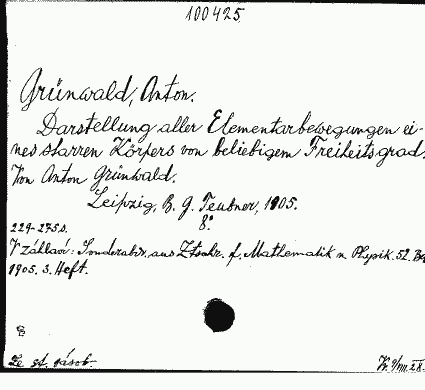 100425
Grünwald, Anton.
Darstellung aller Elementarbewegungen ei-
nes starren Körpers von beliebigem Freiheitsgrad.
Von Anton Grünwald.
Leipzig, B. G. Teubner, 1905.
8°.
229-275 s.
V záhlaví: Sonderabdr. aus Ztschr. f. Mathematik u. Physik. 52. Bd.
1905. 3. Heft.
Ze st. zásob.